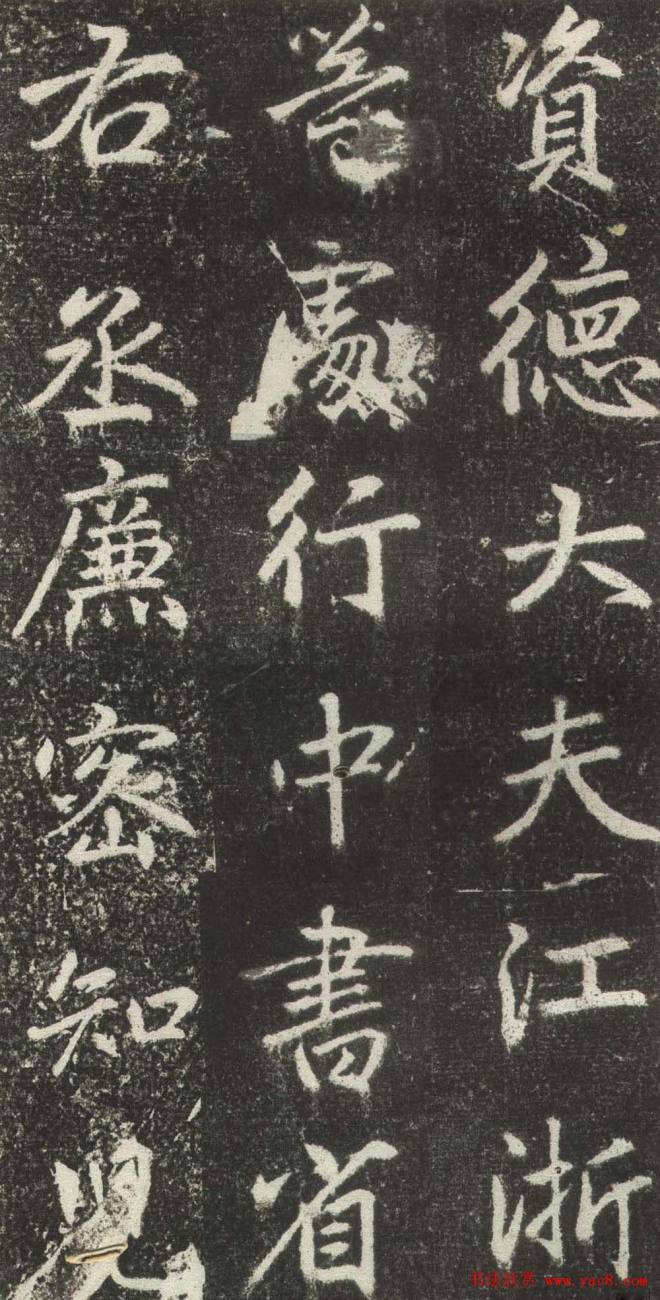 資德大夫江浙
等處行中書省
右丞廉密知兒
书法欣赏 www.yac8.com